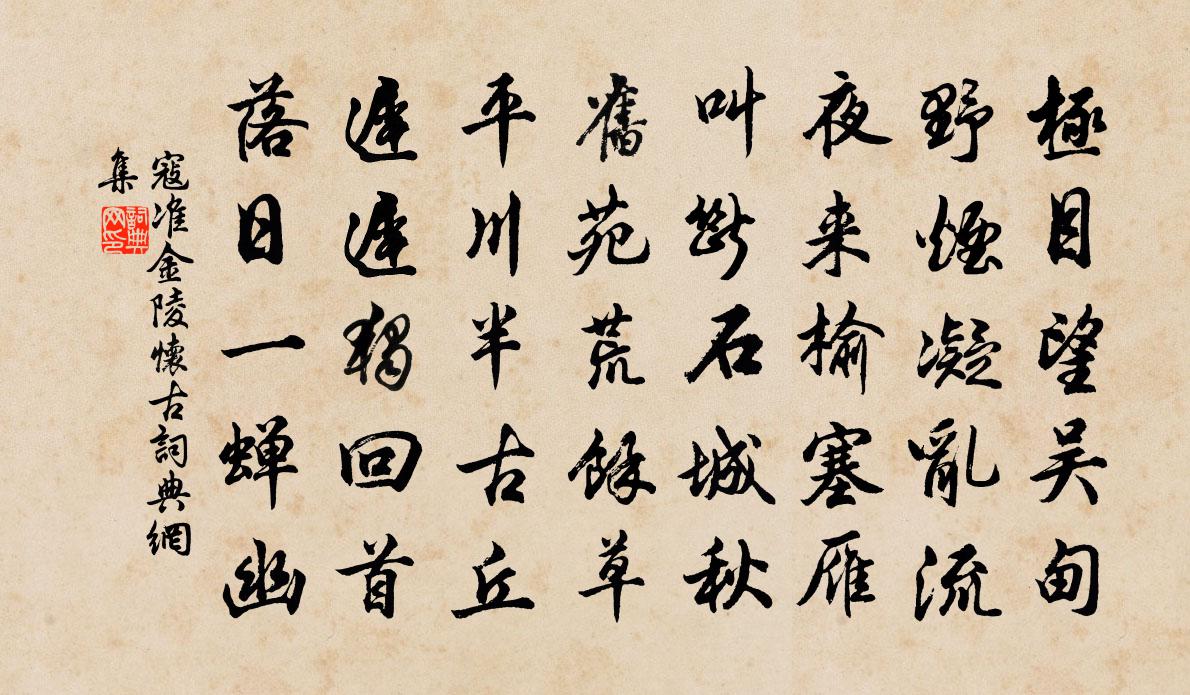 極目望吴甸
野煙凝亂流
夜来榆塞雁
叫斷石城秋
舊苑荒餘草
平川半古丘
遲遲獨回首
落日一蝉幽
寇准金陵懷古詞典網
集
詞典網印